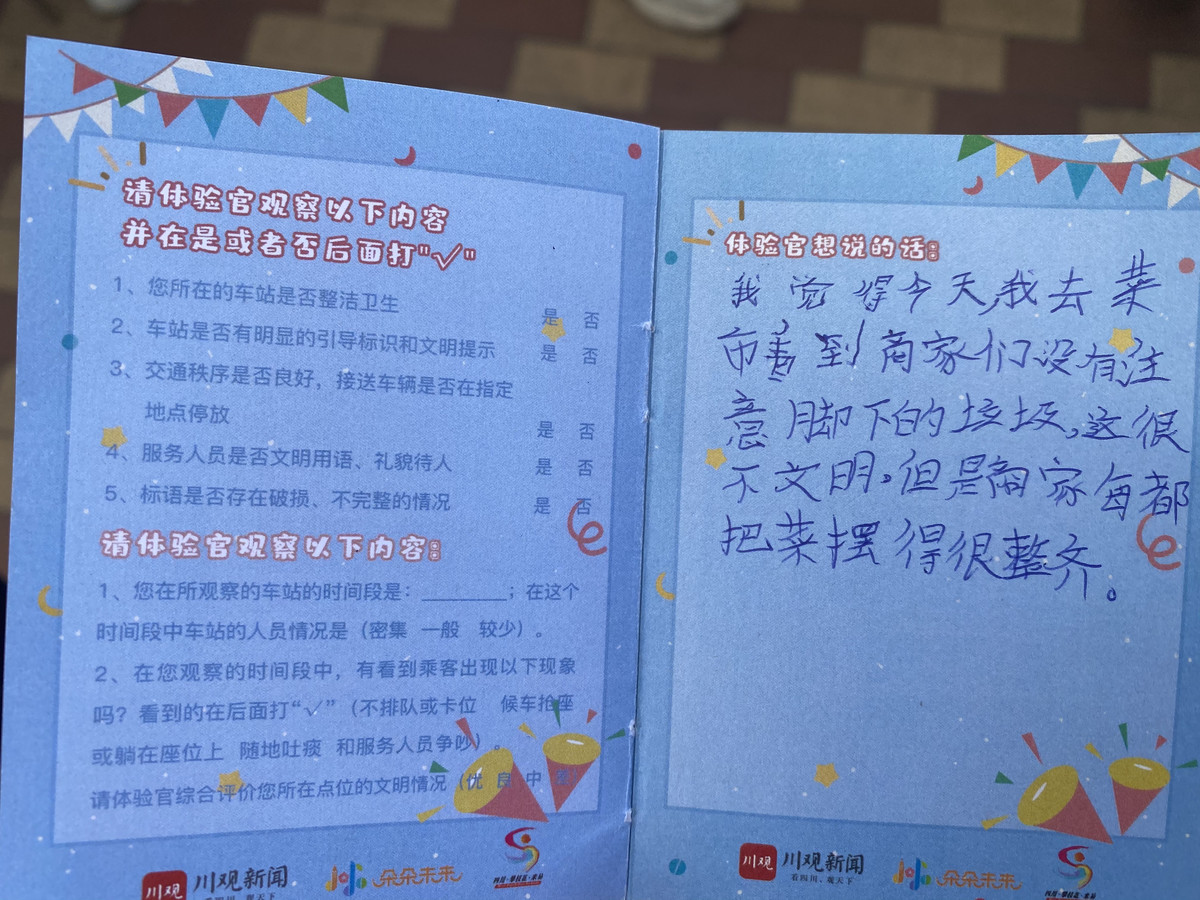 请体验官观察以下内容
并在是或者否后面打"√"
1、您所在的车站是否整洁卫生 是 否
2、车站是否有明显的引导标识和文明提示 是 否
3、交通秩序是否良好，接送车辆是否在指定
地点停放 是 否
4、服务人员是否文明用语、礼貌待人 是 否
5、标语是否存在破损、不完整的情况 是 否
请体验官观察以下内容：
1、您在所观察的车站的时间段是：________；在这个
时间段中车站的人员情况是（密集 一般 较少）。
2、在您观察的时间段中，有看到乘客出现以下现象
吗？看到的在后面打“√”（不排队或卡位 候车抢座
或躺在座位上 随地吐痰 和服务人员争吵）。
请体验官综合评价您所在点位的文明情况（优 良 中
川观 川观新闻
看四川，观天下
朵朵未来
体验官想说的话：
我觉得今天,我去菜
市看到商家们没有注
意脚下的垃圾,这很
不文明。但是商家每都
把菜摆得很整齐。
川观 川观新闻
看四川，观天下
朵朵未来